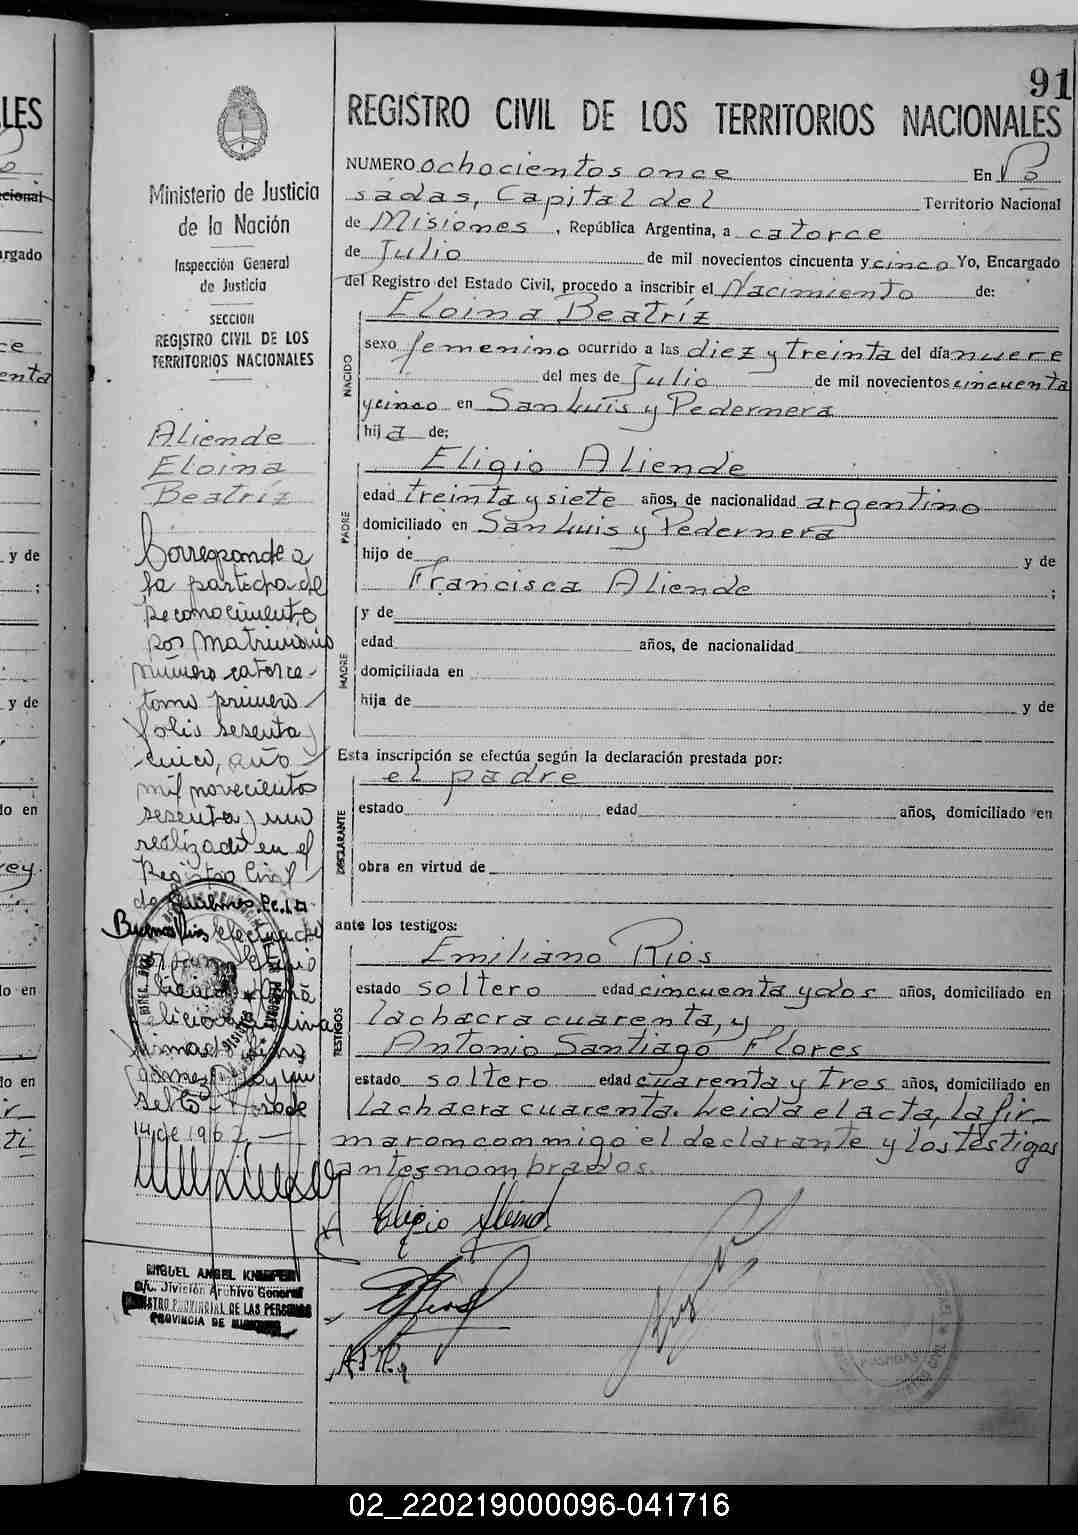 91
REGISTRO CIVIL DE LOS TERRITORIOS NACIONALES
NUMERO ochocientos once En Po
sadas, Capital del Territorio Nacional
de Misiones, República Argentina, a catorce
de Julio de mil novecientos cincuenta y cinco Yo, Encargado
del Registro del Estado Civil, procedo a inscribir el Nacimiento de:
NACIDO
Eloina Beatríz
sexo femenino ocurrido a las diez y treinta del día nueve
del mes de Julio de mil novecientos cincuenta
y cinco en San Luis y Pedernera
hija de:
PADRE
Eligio Aliende
edad treinta y siete años, de nacionalidad argentino
domiciliado en San Luis y Pedernera
hijo de y de
Francisca Aliende ;
MADRE
y de
edad años, de nacionalidad
domiciliada en
hija de y de
Esta inscripción se efectúa según la declaración prestada por:
el padre
DECLARANTE
estado edad años, domiciliado en
obra en virtud de
ante los testigos:
TESTIGOS
Emiliano Rios
estado soltero edad cincuenta y dos años, domiciliado en
la chacra cuarenta, y
Antonio Santiago Flores
estado soltero edad cuarenta y tres años, domiciliado en
la chacra cuarenta. Leida el acta, la fir
maron conmigo el declarante y los testigos
antes nombrados.
Eligio Aliend
Ministerio de Justicia
de la Nación
Inspección General
de Justicia
SECCION
REGISTRO CIVIL DE LOS
TERRITORIOS NACIONALES
Aliende
Eloina
Beatríz
Corresponde a
la partida de
reconocimiento
por matrimonio
número catorce
tomo primero
folio sesenta y
cinco, año
mil novecientos
sesenta y uno
realizado en el
Registro Civil
de Quilmes. Pc. La
Buenos Aires
14 de 1967
MIGUEL ANGEL
División Archivo General
REGISTRO PROVINCIAL DE LAS PERSONAS
PROVINCIA DE MISIONES
POSADAS
LES
cional
rgado
ce
enta
y de
;
y de
do en
do en
do en
02_220219000096-041716